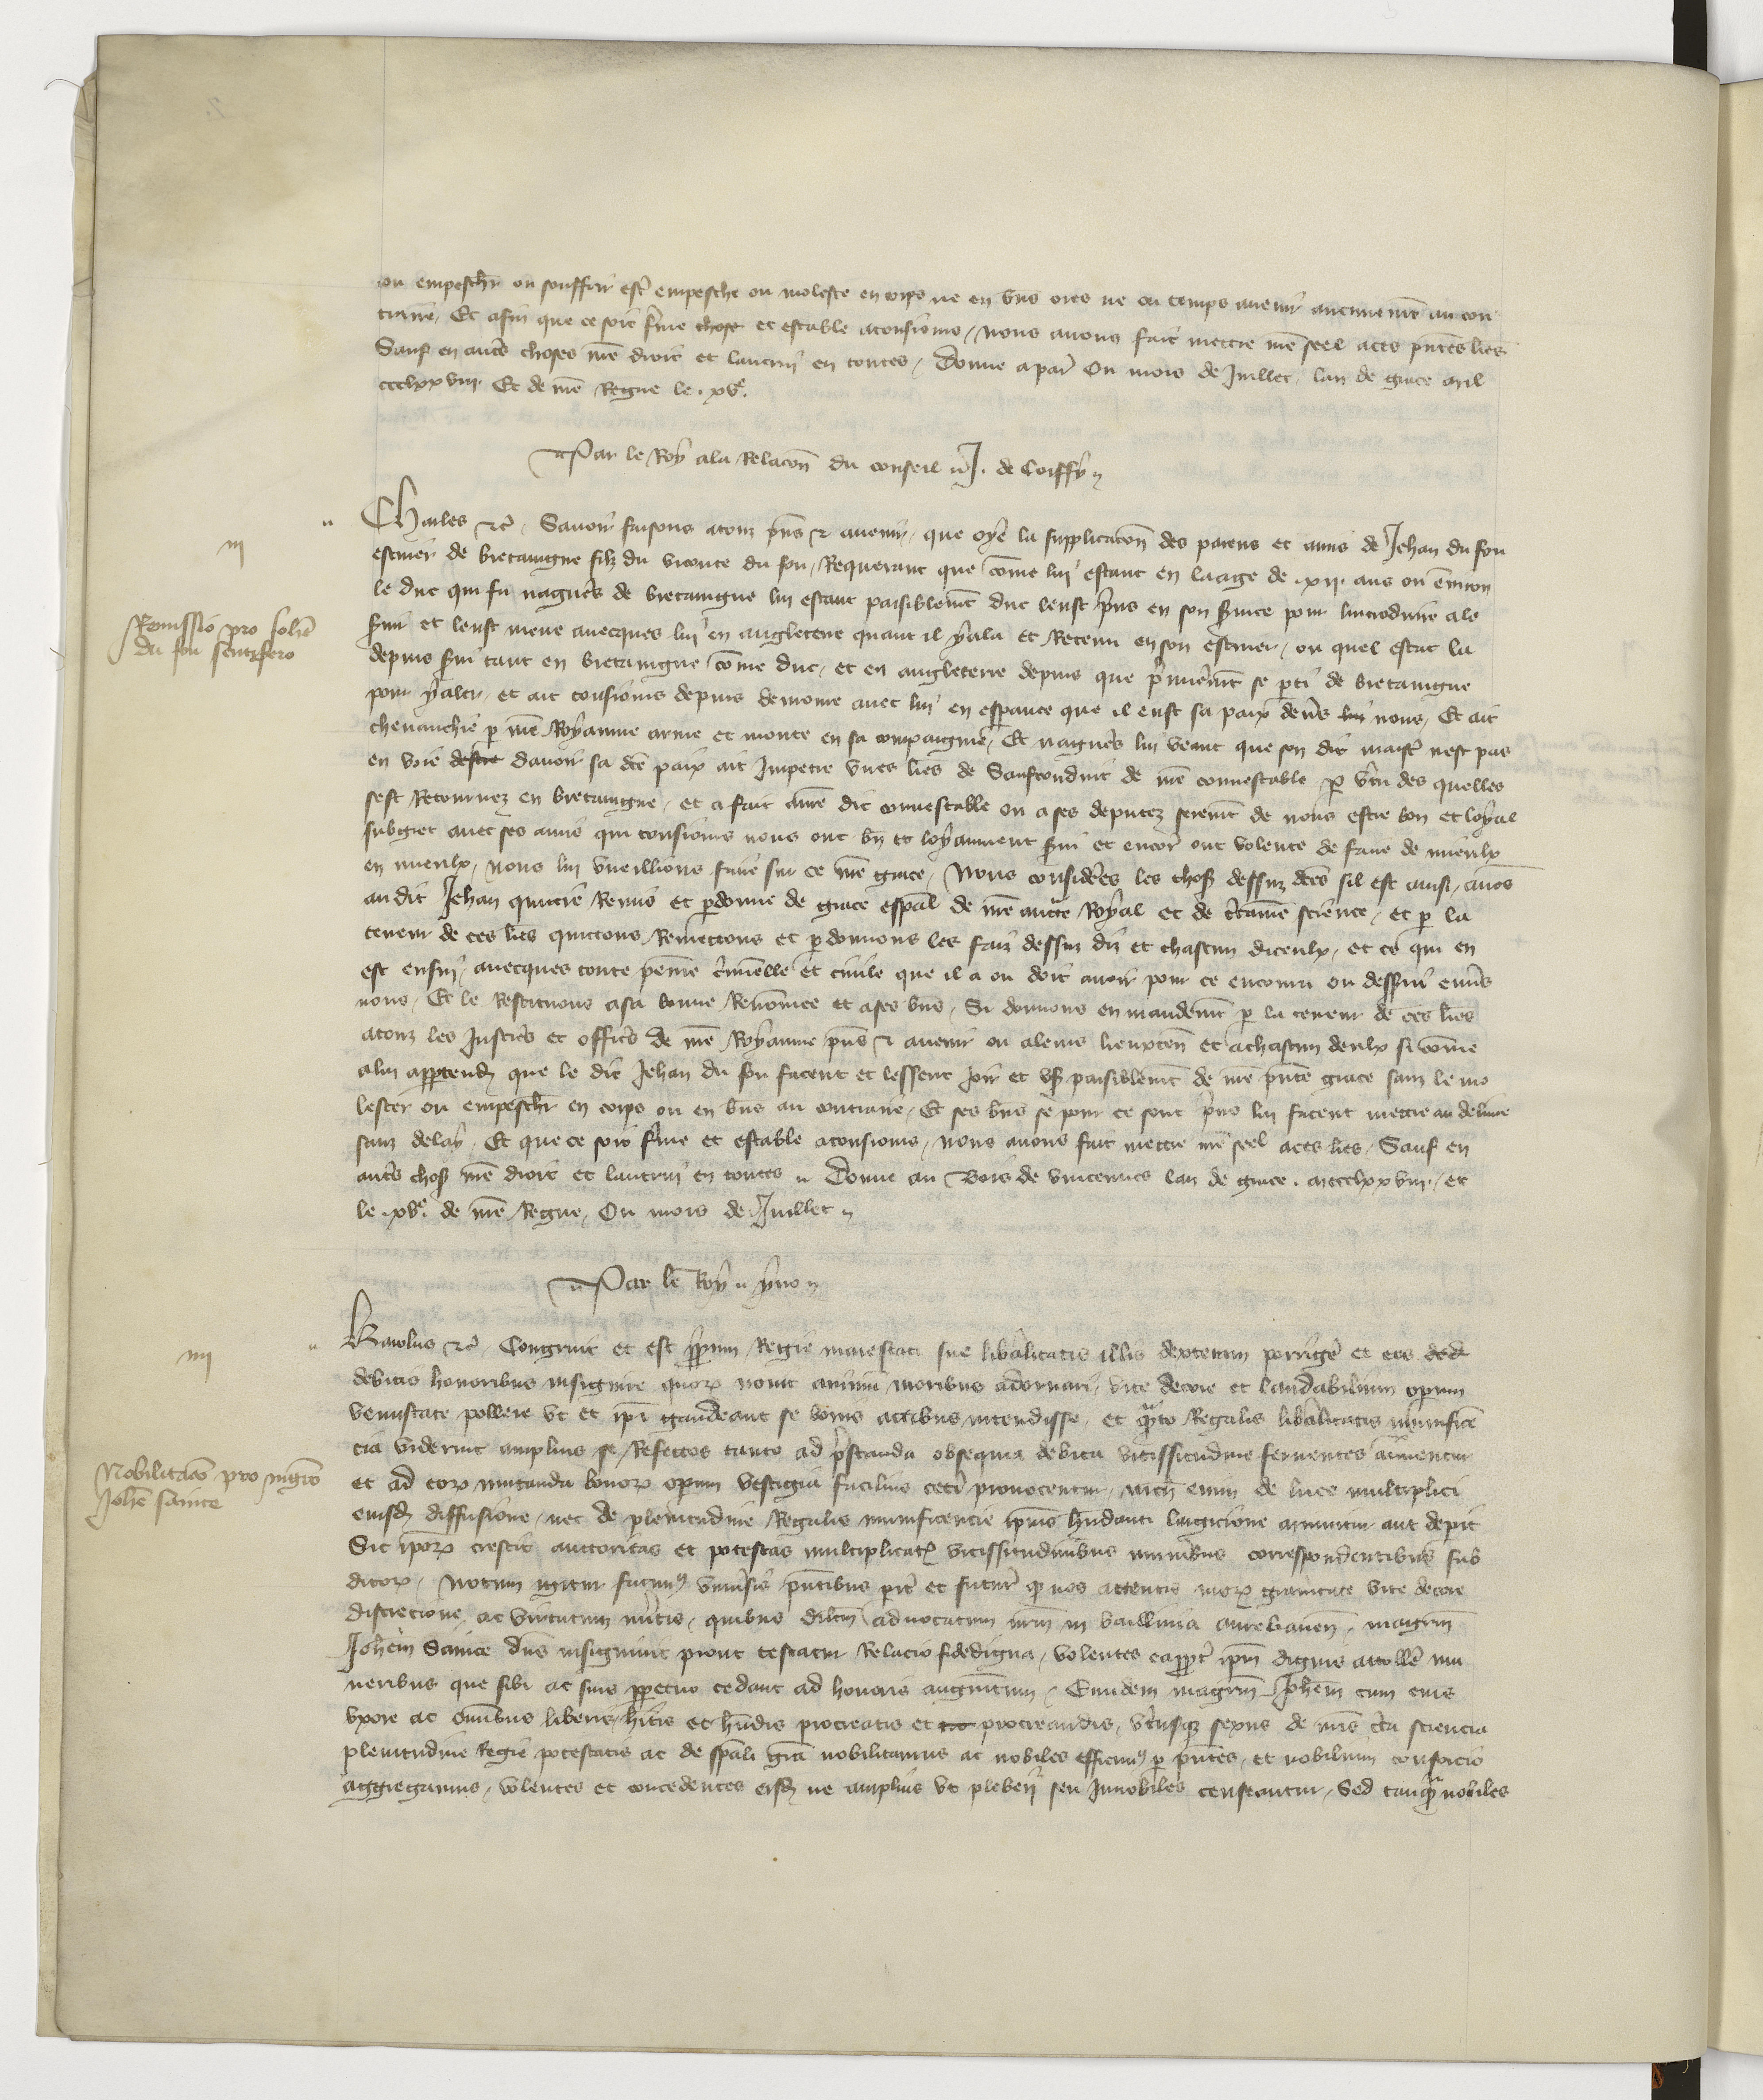 ou empeschier ou souffrir estre empesche ou moleste en corps ne en biens ores ne ou temps avenir aucunement au con
traire, Et afin que ce soit ferme chose et estable atousiours, Nous avons fait mettre nre seel aces pntes lres
Sauf en autres choses nre droit et lautrui en toutes, Donne a paris Ou mois de Juillet, lan de grace mil
ccclxxviii Et de nre Regne le .xve.
Par le Roy ala Relacon du conseil J. de Coiffy
iii
Remissio pro Johe
du fou scutifero
Charles etc. Savoir faisons atouz pns et avenir, que oye la supplicacon des parens et amis de Jehan du fou
escuier de bretaingne filz du viconte du fou, Requerant que come lui estant en laage de .xii. ans ou environ
le duc qui fu nagueres de bretaingne lui estant paisiblemt duc leust prins en son service pour lintroduire ale
servir et leust mene avecques lui en angleterre quant il y ala et Retenu en son escuier, ou quel estat la
depuis servi tant en bretaingne come duc, et en angleterre depuis que se parti de bretaingne
pour y aler, et ait tousiours depuis demoure avec lui en esperance que il eust sa paix devers nous, Et ait
chevauchie par nre Royaume arme et monte en sa compaignie, Et nagueres lui veant que son dit maistre nest pas
en voie davoir sa dce paix ait Impetre unes lres de Saufconduit de nre connestable par vertu des quelles
sest Retournez en bretaingne, et a fait anre dit connestable ou a ses deputez serement de nous estre bon et loyal
subgiet avec ses amis qui tousiours nous ont bn et loyaument servi et encores ont volente de faire de mieulx
en mieulx, Nous lui vueillions faire sur ce nre grace, Nous considerees les choses dessuz dces sil est ainsi, avos
au dit Jehan quictie Remis et pardonne de grace espal de nre aucte Royal et de certaine science, et par la
teneur de ces lres quictons Remettons et pardonnons les faiz dessuz diz et chascun diceulx, et ce qui en
est ensui, avecques toute peine criminelle et civile que il a ou doit avoir pour ce encouru ou desservi envers
nous, Et le Restituons asa bonne Renommee et ases biens, Si donnons en mandemt par la teneur de ces lres
atouz les Justiciers et officiers de nre Royaume pns et avenir ou aleurs lieuxten et achascun deulx si come
alui appartendra que le dit Jehan du fou facent et lessent joir et user paisiblemt de nre pnte grace sanz le mo
lester ou empeschier en corps ou en biens au contraire, Et ses biens se pour ce sont prins lui facent mettre au delivre
sanz delay, Et que ce soit ferme et estable atousiours, Nous avons fait mettre nre seel aces lres, Sauf en
autres choses nre droit et lautrui en toutes Donne au Bois de vincennes lan de grace mccclxxviii, et
le .xve. de nre Regne, Ou mois de Juillet
Par le Roy yvo
iiii
Nobilitaco pro magro
Johe Saince
Karolus etc. Congruit et est proprium Regie maiestati sue liberalitatis illis dexteram porrigere et eos
debitis honoribus insignire quorum novit animum moribus adornari, vite decore et laudabilium operum
venustate pollere ut et ipi gaudeant se bonis actibus intendisse, et quanto Regalis liberalitatis munificen
cia viderint amplius se Refectos tanto ad prestanda obsequia debita vicissitudine ferventes animentur
et ad eorum imitanda bonorum operum vestigia facilius ceteri provocentur, nichil enim de luce multiplici
eiusdem diffusione, nec de plenitudine Regalis munificencie ipius habundanti largicione minuitur aut deperit
Sic ipsorum crescit auctoritas et potestas multiplicatis vicissitudinibus muneribus correspondentibus sub
ditorum, Notum igitur facimus universis presentibus pariter et futuris quod nos attentis morum gravitate vite decore
discretione ac virtutum meritis, quibus dilcm advocatum nrm in baillivia aurelianen, magrm
Johem Saince dns insignivit prout testatur Relacio fidedigna, volentes eapropter ipm dignis attollere mu
neribus que sibi ac suis perpetuo cedant ad honoris augmtum, Eundem magrm Johem cum eius
uxore ac omibus liberis, hitis et hndis procreatis et procreandis, utriusque sexus de nris certa sciencia
plenitudine Regie potestatis ac de spali gra nobilitamus ac nobiles efficimus per pntes, et nobilium consorcio
aggregamus, volentes et concedentes eisdem ne amplius ut plebeii seu Innobiles censeantur, Sed tanquam nobiles